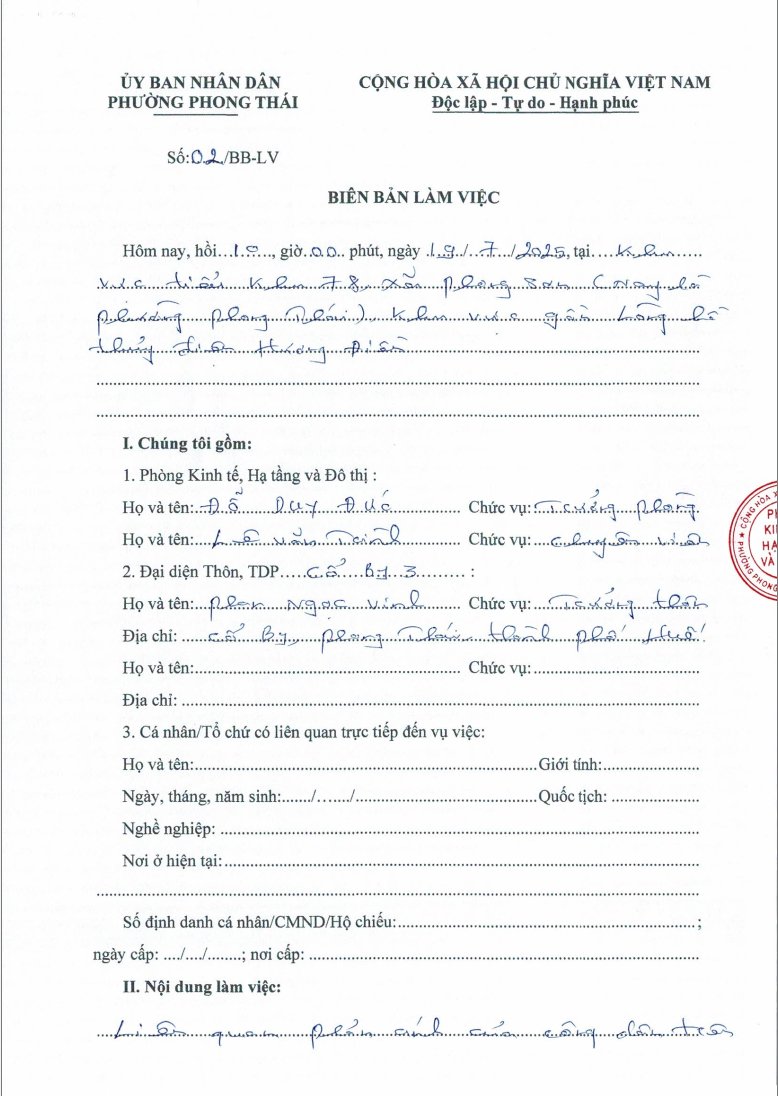 ỦY BAN NHÂN DÂN
PHƯỜNG PHONG THÁI
CỘNG HÒA XÃ HỘI CHỦ NGHĨA VIỆT NAM
Độc lập - Tự do - Hạnh phúc
Số:02/BB-LV
BIÊN BẢN LÀM VIỆC
Hôm nay, hồi...10..., giờ.00.. phút, ngày .19./..7.../2025, tại....Khu.....
vực tiểu khu 78, xã phong sơn (Nay là
phường phong Thái), Khu vực gần lòng hồ
thủy điện Hương Điền
I. Chúng tôi gồm:
1. Phòng Kinh tế, Hạ tầng và Đô thị :
Họ và tên: Đỗ Duy Đức Chức vụ: Trưởng phòng
Họ và tên: Lê Văn Trình Chức vụ: chuyên viên
2. Đại diện Thôn, TDP.....Cổ By 3......... :
Họ và tên: phan Ngọc Vinh Chức vụ: Trưởng thôn
Địa chỉ: Cổ By, phong Thái, thành phố Huế
Họ và tên: Chức vụ:
Địa chỉ:
3. Cá nhân/Tổ chứ có liên quan trực tiếp đến vụ việc:
Họ và tên: Giới tính:
Ngày, tháng, năm sinh:....../....../ Quốc tịch:
Nghề nghiệp:
Nơi ở hiện tại:
Số định danh cá nhân/CMND/Hộ chiếu: ;
ngày cấp: ..../..../........; nơi cấp:
II. Nội dung làm việc:
Liên quan phản ánh của công dân trên